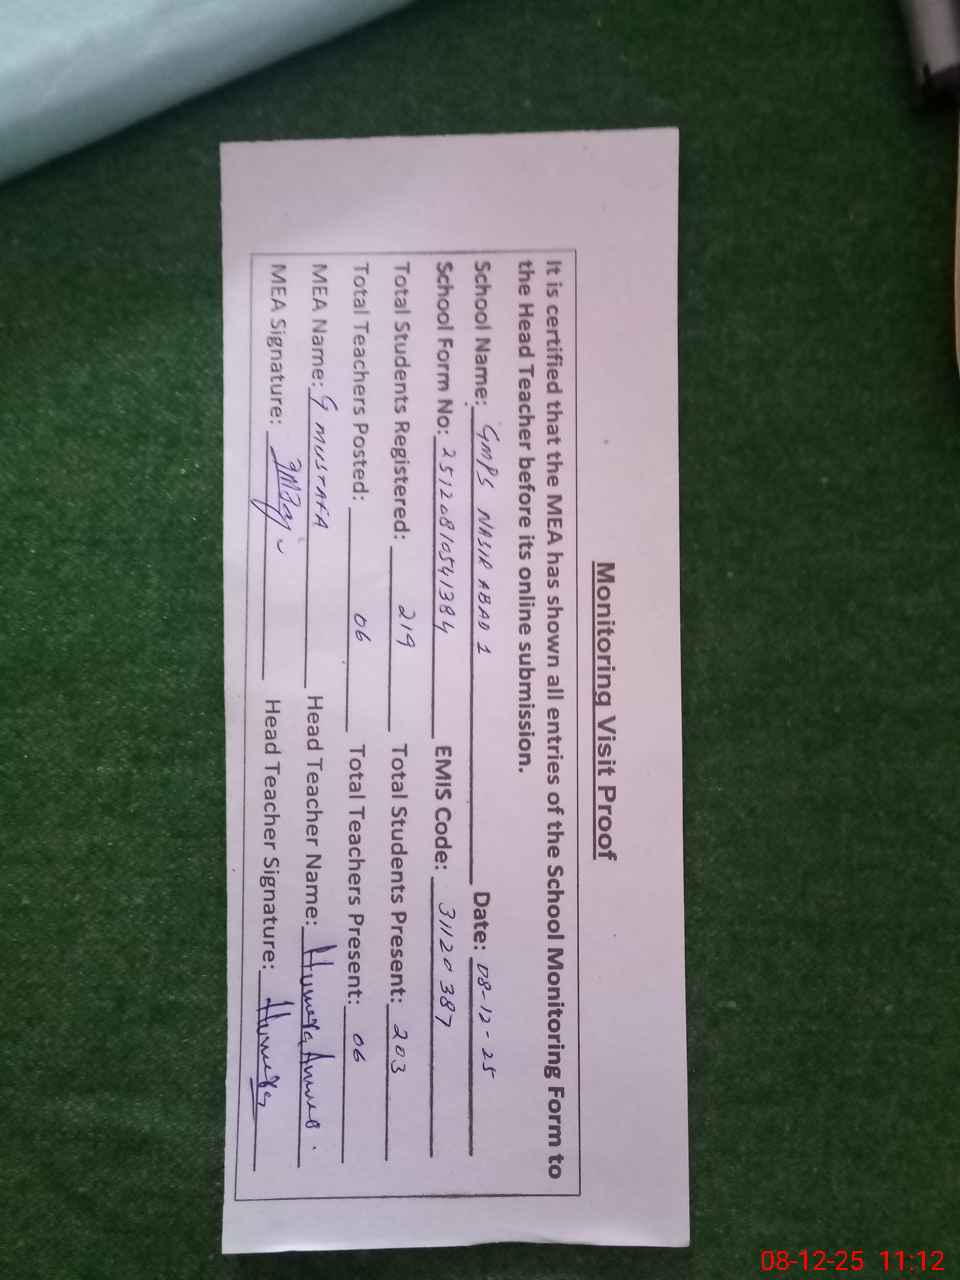 Monitoring Visit Proof
It is certified that the MEA has shown all entries of the School Monitoring Form to
the Head Teacher before its online submission.
School Name: GMPS NASIR ABAD 1 Date: 08-12-25
School Form No: 25120810541384 EMIS Code: 31120387
Total Students Registered: 219 Total Students Present: 203
Total Teachers Posted: 06 Total Teachers Present: 06
MEA Name: G MUSTAFA Head Teacher Name: Humera
MEA Signature: Head Teacher Signature: Humera
08-12-25 11:12